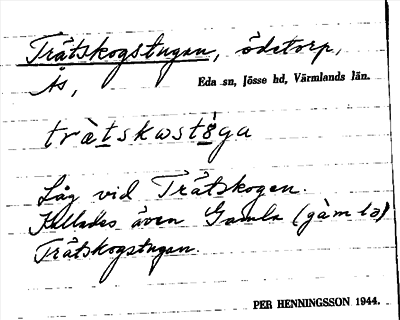 Trätskogstugan, ödetorp,
Ås, Eda sn, Jösse hd, Värmlands län.
trätskwstöga
Låg vid Trätskogen.
Kallades även Gamla (gàm la)
Trätskogstugan.
PER HENNINGSSON 1944.